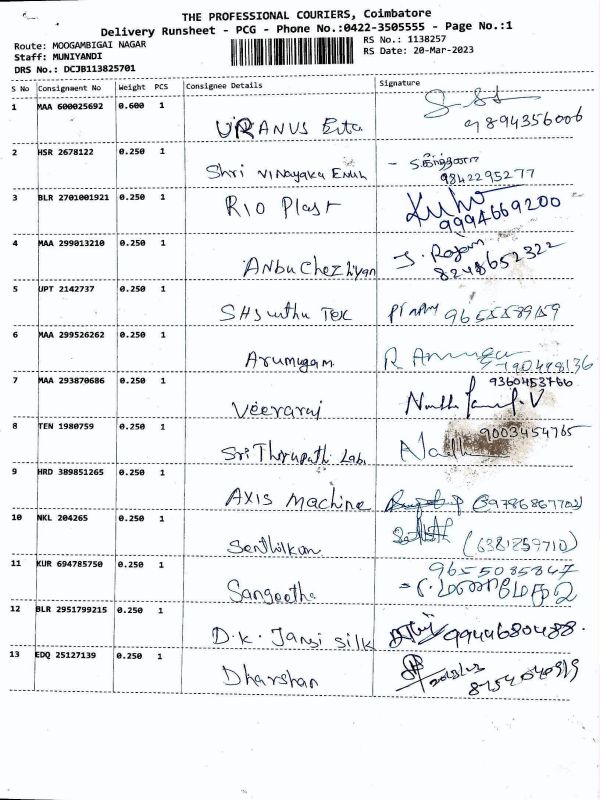 THE PROFESSIONAL COURIERS, Coimbatore
Delivery Runsheet - PCG - Phone No.:0422-3505555 - Page No.:1
Route: MOOGAMBIGAI NAGAR
RS No.: 1138257
Staff: MUNIYANDI
RS Date: 20-Mar-2023
DRS No.: DCJB113825701
S No Consignaent No Weight PCS Consignee Details Signature
1 MAA 600025692 0.600 1
URANUS
9894356006
2 HSR 2678122 0.250 1
Shri Vinayaka
9842295277
3 BLR 2701001921 0.250 1
RIO Plast
9994669200
4 MAA 299013210 0.250 1
Anbuchezhiyan
J. Rajam
8248652322
5 UPT 2142737 0.250 1
6 MAA 299526262 0.250 1
Arumugam
7 MAA 293870686 0.250 1
9360453766
Veeraraj
8 TEN 1980759 0.250 1
9003454765
Sri Thirupathi Lab.
9 HRD 389851265 0.250 1
Axis Machine
10 NKL 204265 0.250 1
Senthilkan
(6381259710)
11 KUR 694785750 0.250 1
9655085847
Sangeetha
12 BLR 2951799215 0.250 1
D.K. Jansi Silk
9944680488.
13 EDQ 25127139 0.250 1
Dharshan